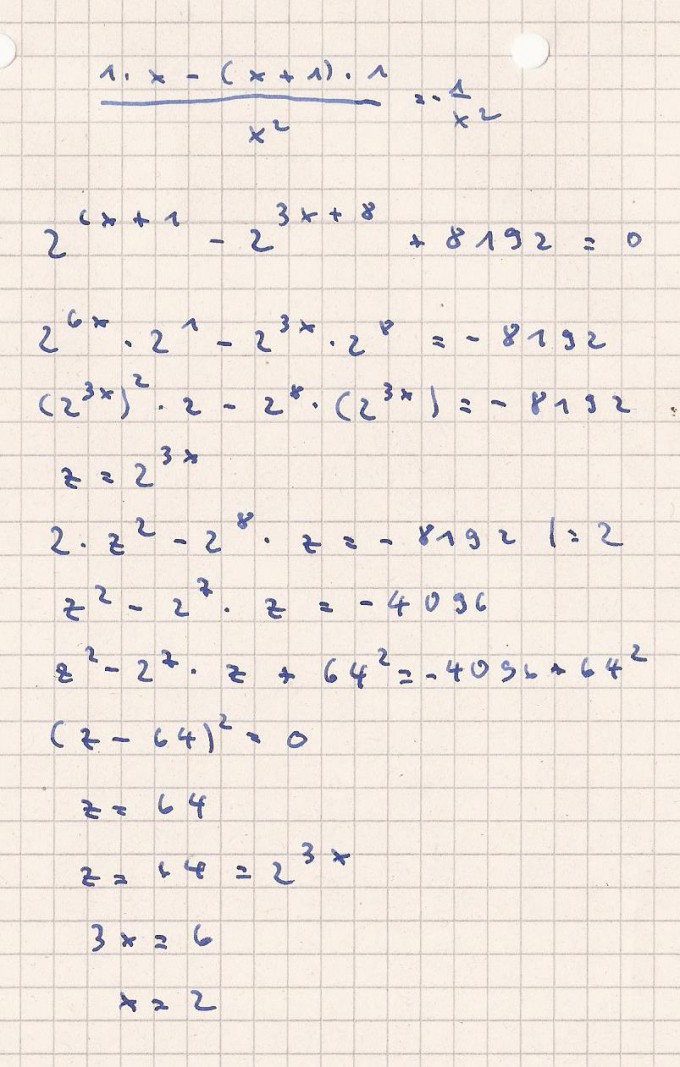 1 · x - (x + 1) · 1 / x² = - 1/x²
2^(6x + 1) - 2^(3x + 8) + 8192 = 0
2^(6x) · 2^1 - 2^(3x) · 2^8 = - 8192
(2^(3x))² · 2 - 2^8 · (2^(3x)) = - 8192
z = 2^(3x)
2 · z² - 2^8 · z = - 8192 |: 2
z² - 2^7 · z = - 4096
z² - 2^7 · z + 64² = - 4096 + 64²
(z - 64)² = 0
z = 64
z = 64 = 2^(3x)
3x = 6
x = 2